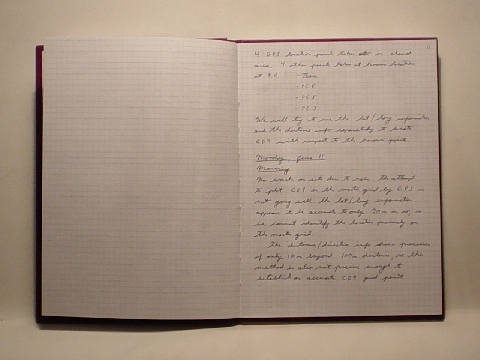 11
4 GPS location points taken in
area. 4 other points taken at known location
at P.C.
We will try to use the lat/long information
and the distance info separately to locate
CO9 with respect to the known points.
Monday, June 11
Morning
No work on site due to rain. The attempt
to plot CO9 in the master grid by GPS is
not going well. The lat/long information
appears to be accurate to only 20m or so, so
we cannot identify the location precisely on
the master grid.
The distance/direction info shows precision
of only 10m beyond 100m distance, so this
method is also not precise enough to
establish an accurate CO9 grid point.